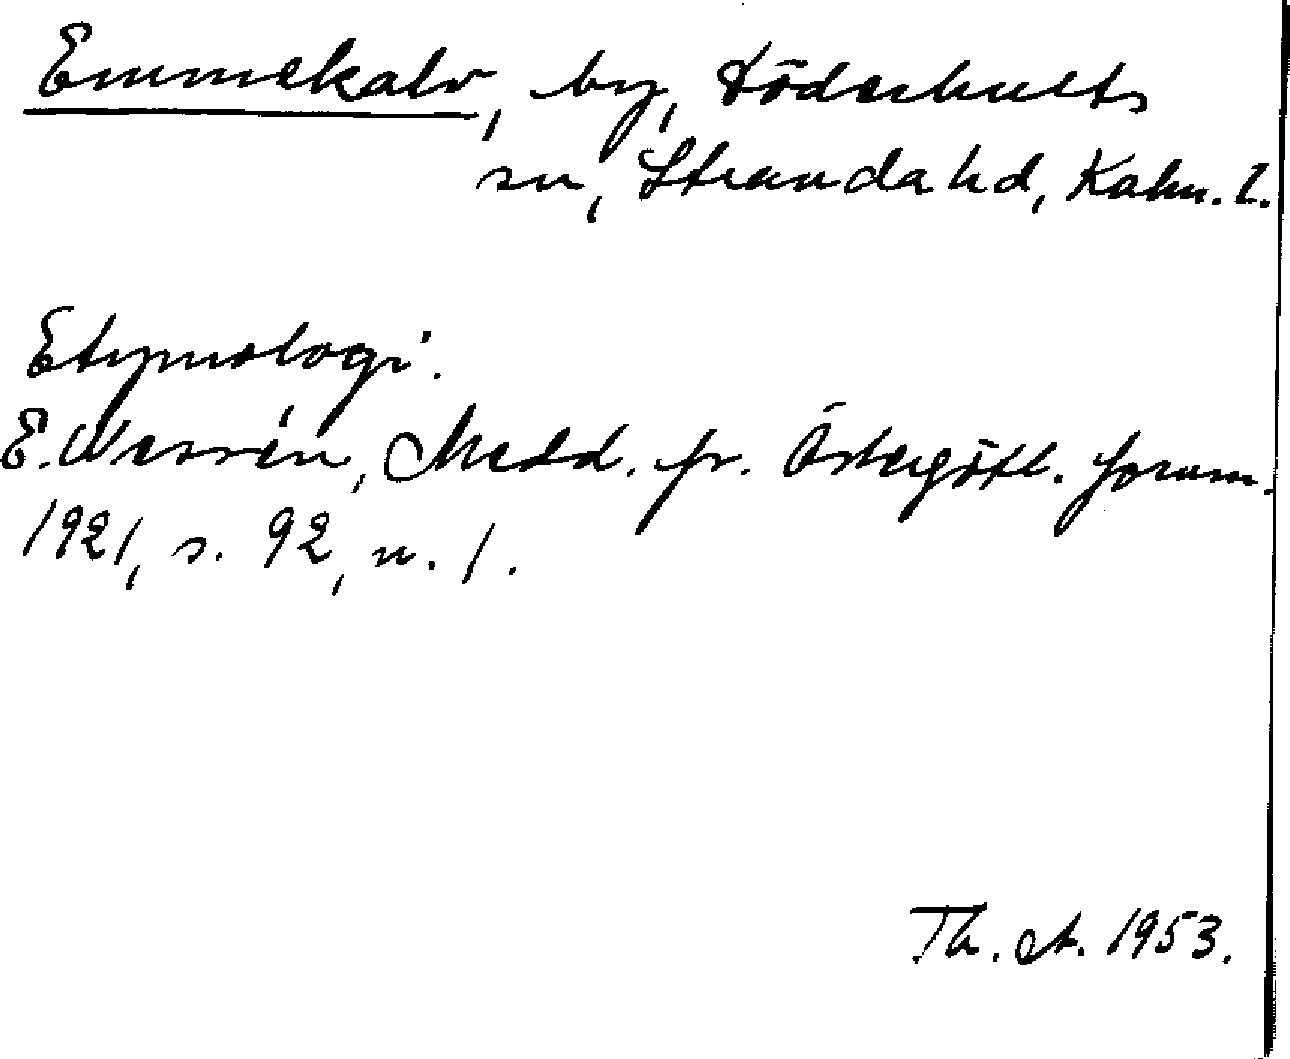 Emmekalv, by, Döderhults
sn, Stranda hd, Kalm. l.
Etymologi.
E. Wessén, Medd. fr. Östergötl. fornm.
1921, s. 92, n. 1.
Th. A. 1953.